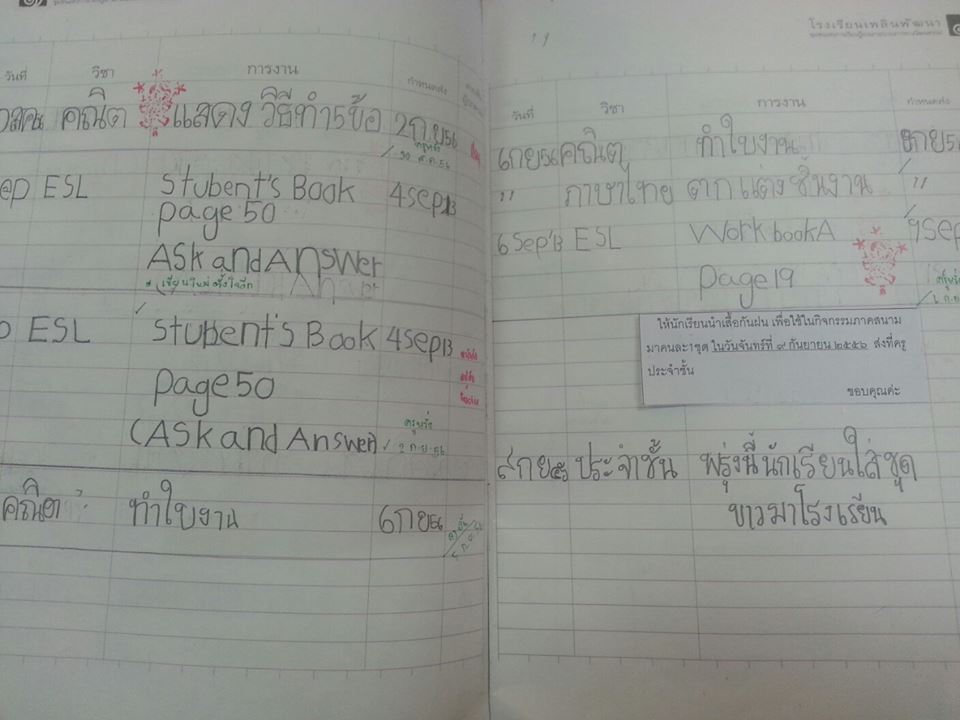 วันที่ วิชา การงาน กำหนดส่ง
คณิต แสดงวิธีทำ5ข้อ 2กย56
ESL Stubent's Book 4sep13
page 50
ASk and AnsWer
เขียนใหม่ตั้งใจอีก
ESL Stubent's Book 4sep13
page 50
(ASk and Answer)
2 ก.ย.56
คณิต ทำใบงาน 6กย56
โรงเรียนเพลินพัฒนา
วันที่ วิชา การงาน กำหนดส่ง
6กย56 คณิต ทำใบงาน
" ภาษาไทย ตากแต่งชิ้นงาน "
6 Sep'13 ESL Work bookA 9Sep
page 19
ให้นักเรียนนำเสื้อกันฝน เพื่อใช้ในกิจกรรมภาคสนาม
มาคนละ1ชุด ในวันจันทร์ที่ ๙ กันยายน ๒๕๕๖ ส่งที่ครู
ประจำชั้น
ขอบคุณค่ะ
ประจำชั้น พรุ่งนี้นักเรียนใส่ชุด
ขาวมาโรงเรียน